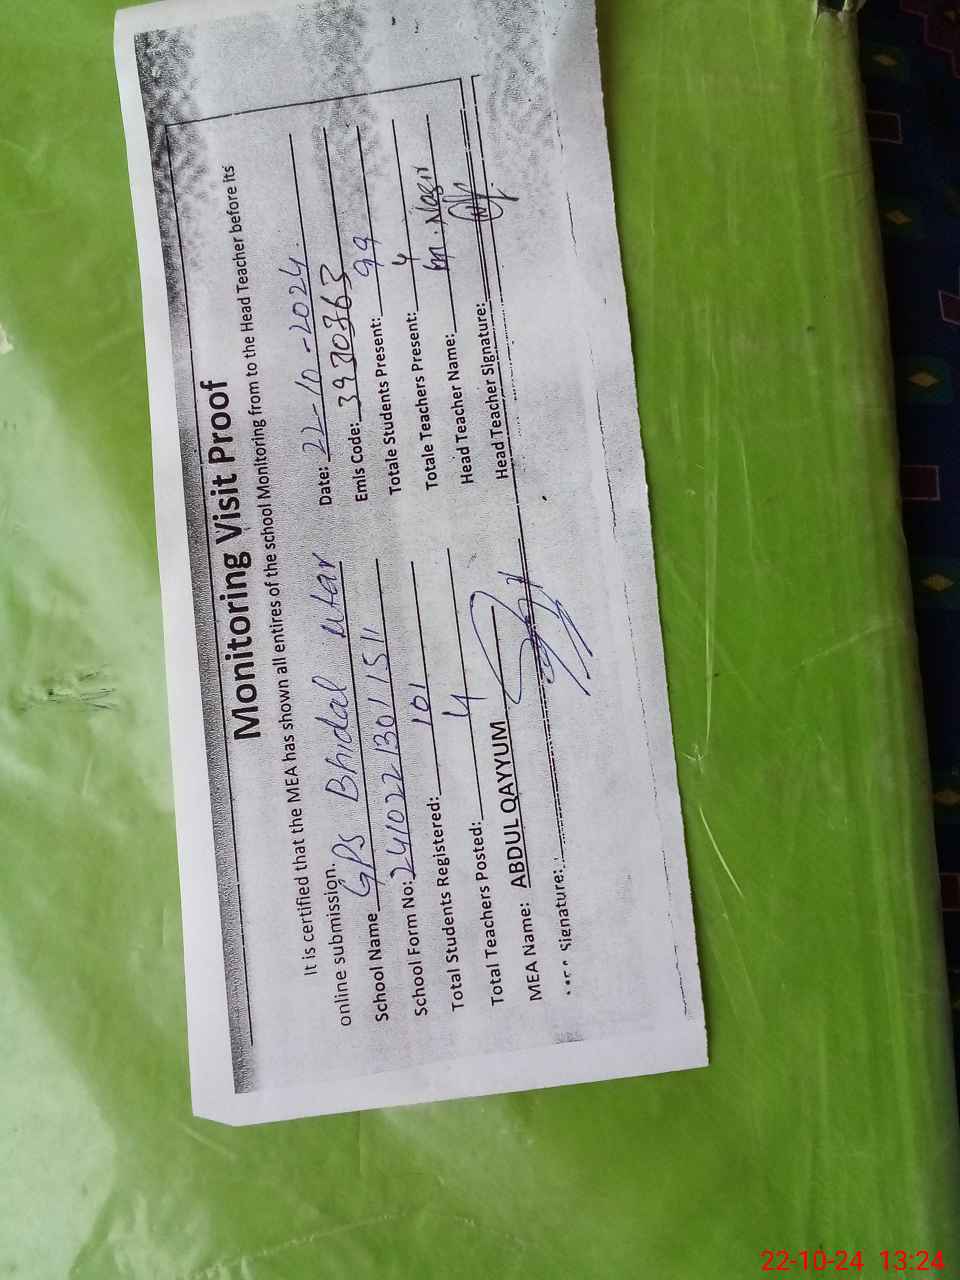 Monitoring Visit Proof
It is certified that the MEA has shown all entires of the school Monitoring from to the Head Teacher before its
online submission.
Date: 22-10-2024.
School Name GPS Bhidal utar
Emls Code: 3930363
School Form No: 2410221301151
Totale Students Present: 99
Total Students Registered: 101
Totale Teachers Present: 4
Total Teachers Posted: 4
Head Teacher Name: M. Nasir
MEA Name: ABDUL QAYYUM
Head Teacher Signature:
Signature:
22-10-24 13:24